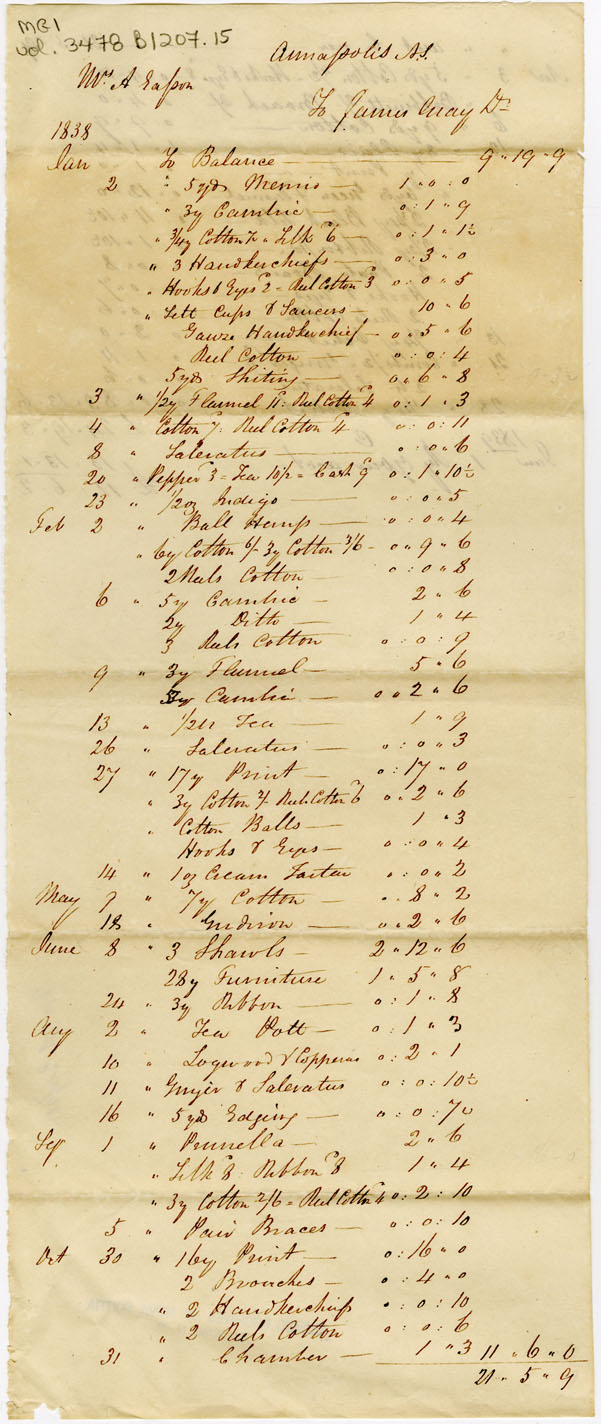 MG1
vol. 3478 B1207.15
Annapolis N.S.
Mrs A Easson
To James Gray Dr
1838
Jan To Balance — 9 " 19 " 9
2 " 5 yds Merino — 1 " 0 : 0
" 3y Cambric — 0 : 1 " 9
" 3/4y Cotton 7½ " Silk 6d 0 : 1 " 1½
" 3 Handkerchiefs — 0 : 3 " 0
" Hooks & Eyes 2d = Reel Cotton 3d 0 : 0 " 5
" Sett Cups & Saucers — 10 " 6
Gauze Handkerchief — 0 " 5 " 6
Reel Cotton — 0 : 0 : 4
5 yds Shiting — 0 " 6 " 8
3 " 1/2y Flannel 11d : Reel Cotton 4d 0 : 1 " 3
4 " Cotton 7d : Reel Cotton 4d 0 : 0 : 11
8 " Saleratus — 0 : 0 " 6
20 " Pepper 3d = Tea 10½ = Cash 9d 0 : 1 " 10½
23 " 1/2oz Indigo — 0 : 0 " 5
Feb 2 " Ball Hemp — 0 : 0 " 4
" 6y Cotton 6/- 3y Cotton 3/6 — 0 " 9 " 6
2 Reels Cotton — 0 : 0 " 8
6 " 5y Cambric — 2 " 6
2y Ditto — 1 " 4
3 Reels Cotton 0 : 0 : 9
9 " 3y Flannel — 5 " 6
5y Cambric — 0 " 2 " 6
13 " 1/2 lb Tea — 1 " 9
26 " Saleratus — 0 : 0 " 3
27 " 17y Print — 0 : 17 " 0
" 3y Cotton 2/- Reel Cotton 6d 0 " 2 " 6
" Cotton Balls — 1 " 3
Hooks & Eyes — 0 : 0 " 4
14 " 1 oz Cream Tartar 0 : 0 " 2
May 9 " 7y Cotton — 0 " 8 " 2
18 " Gridiron — 0 " 2 " 6
June 8 " 3 Shawls — 2 " 12 " 6
28y Furniture 1 " 5 " 8
24 " 3y Ribbon — 0 : 1 " 8
Aug 2 " Tea Pott — 0 : 1 " 3
10 " Logwood & Copperas 0 : 2 " 1
11 " Ginger & Saleratus 0 : 0 : 10½
16 " 5 yds Edging — 0 : 0 : 7½
Sep 1 " Prunella — 2 " 6
" Silk 8d : Ribbon 8d 1 " 4
" 3y Cotton 2/6 = Reel Cotton 4d 0 : 2 : 10
5 " Pair Braces — 0 : 0 : 10
Oct 30 " 16y Print — 0 : 16 " 0
2 Brouches — 0 : 4 " 0
" 2 Handkerchiefs 0 : 0 : 10
" 2 Reels Cotton 0 : 0 : 6
31 " Chamber — 1 " 3 11 " 6 " 0
21 " 5 " 9